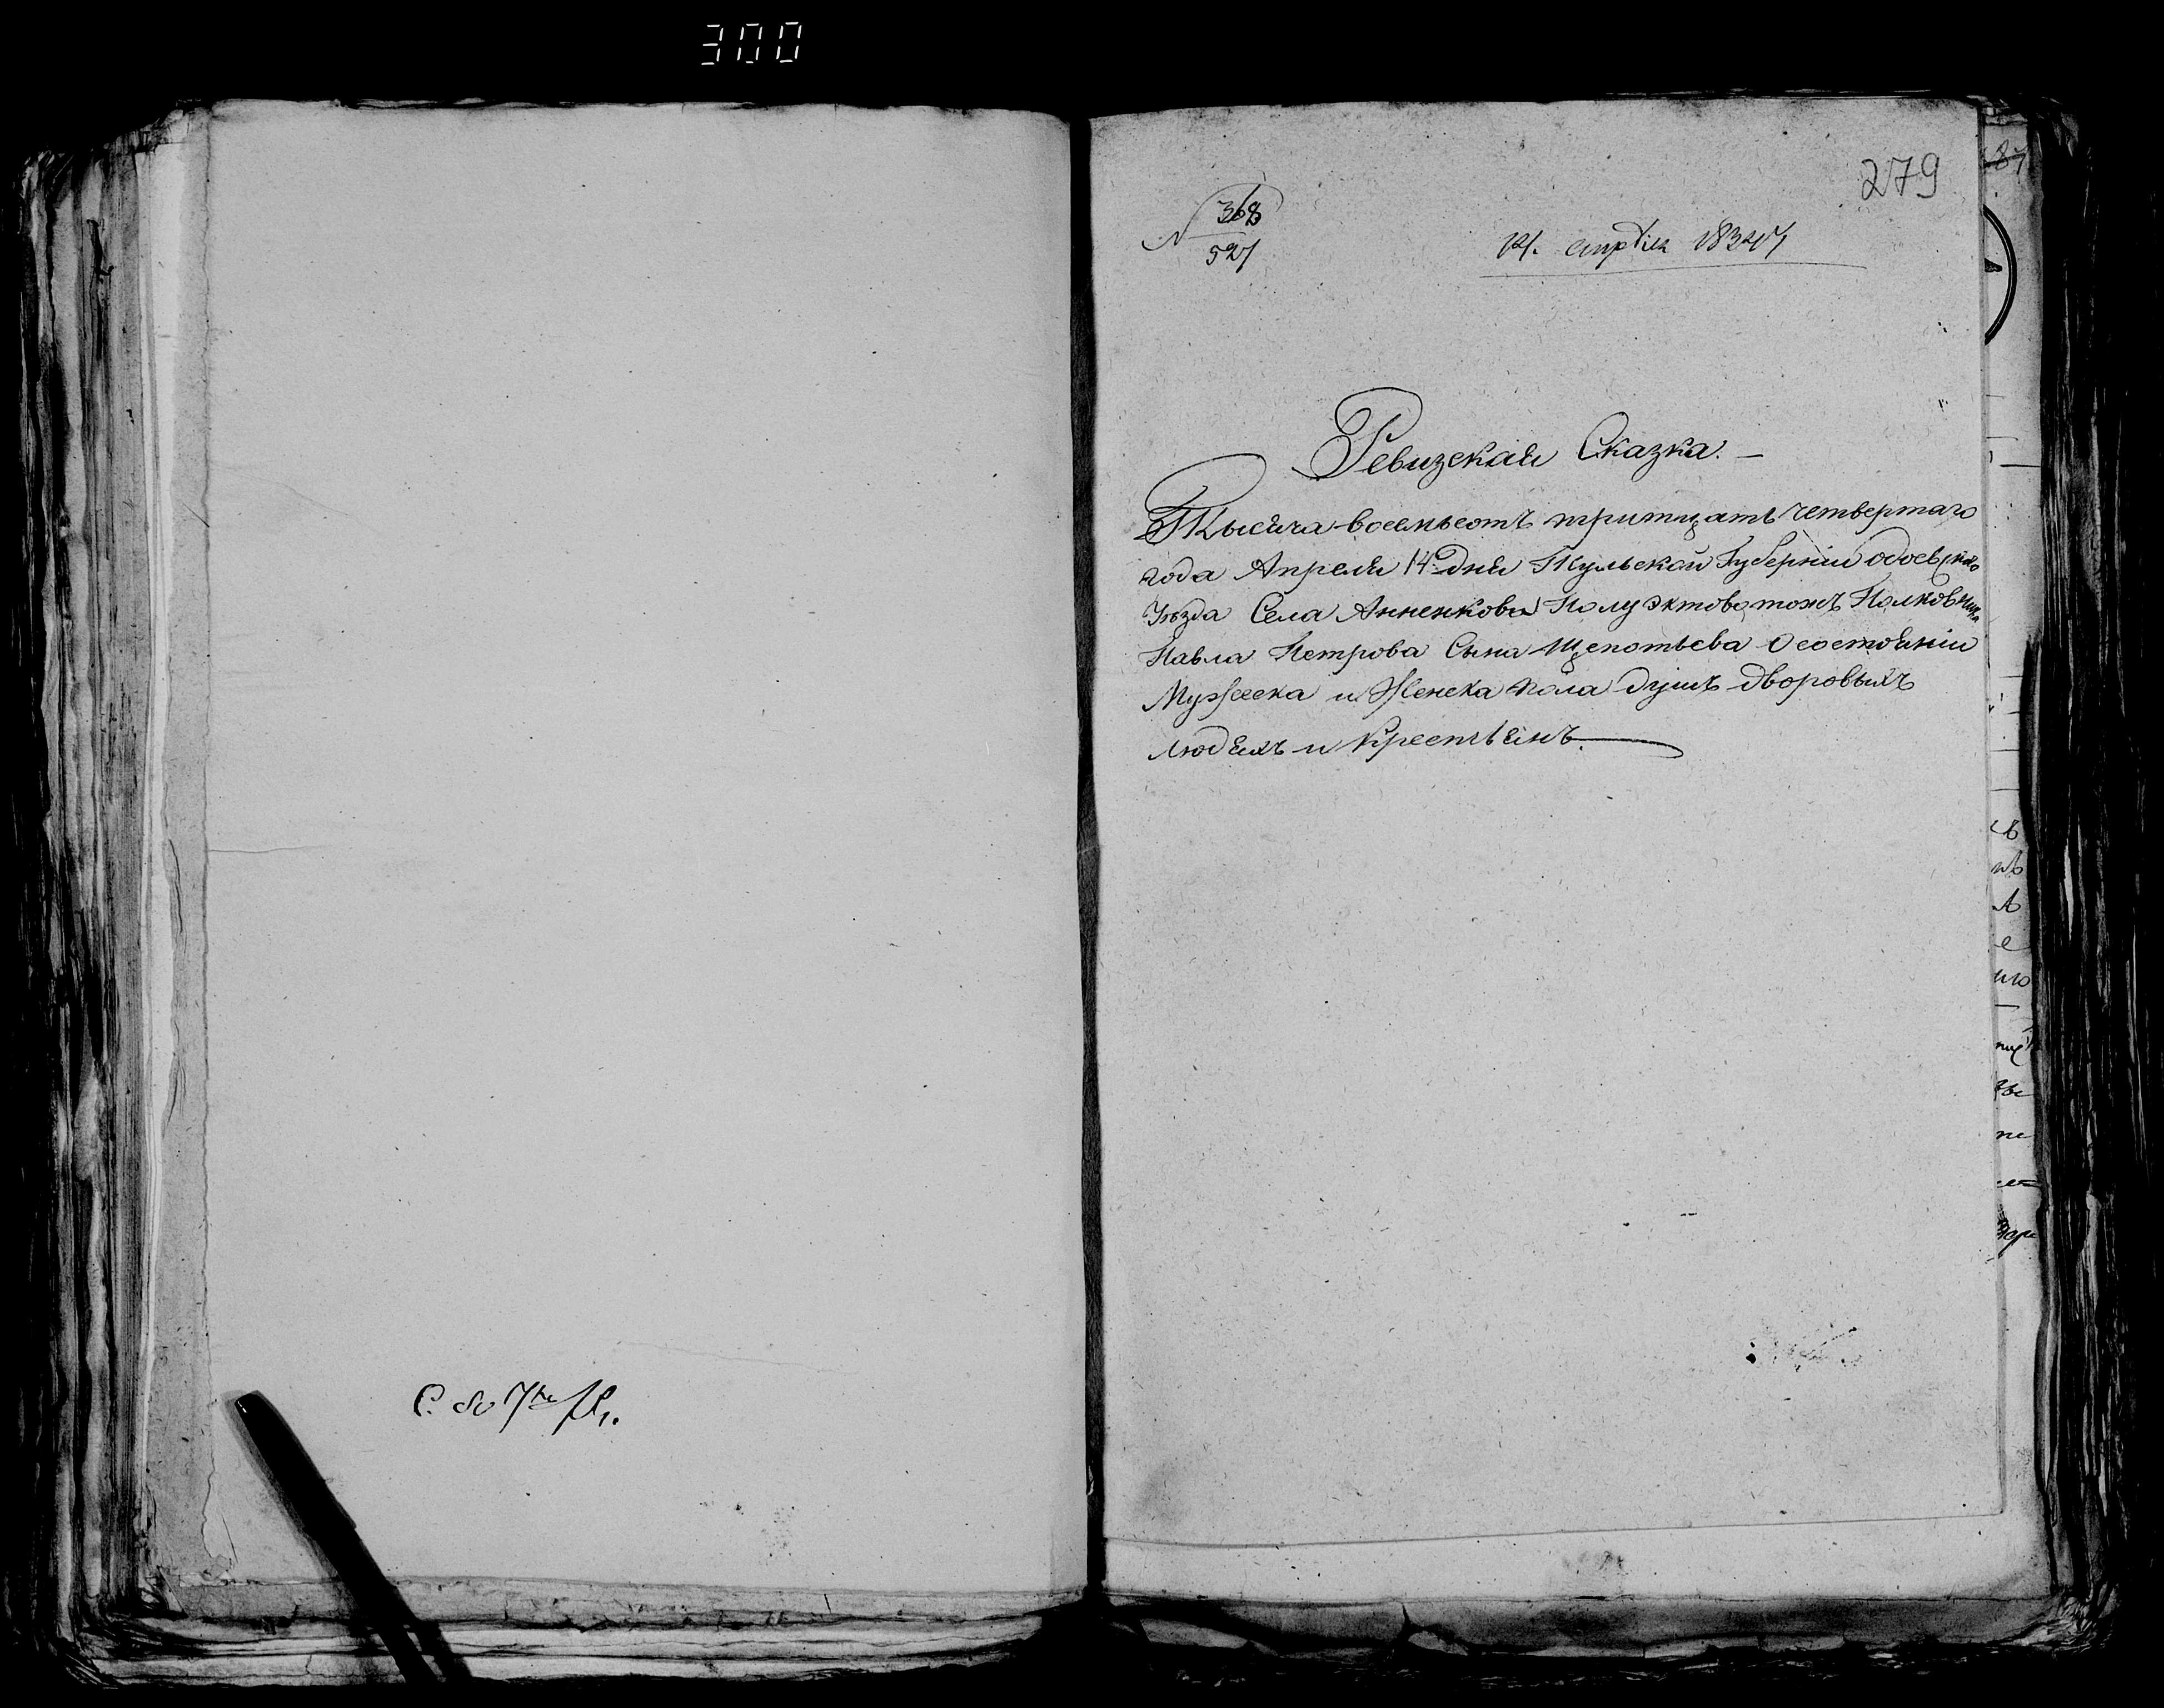 300
279
№ 368
527
14. апрѣля 1834
Ревизская Сказка.
Тысяча восемьсотъ тритцать четвертаго
года Апреля 14 дня Тульской Губерніи Одоевскаго
Уѣзда Села Анненкова Полуэктово тожъ Полковника
Павла Петрова Сына Щепотьева О состояніи
Мужеска и Женска пола душъ дворовыхъ
людяхъ и крестьянъ.